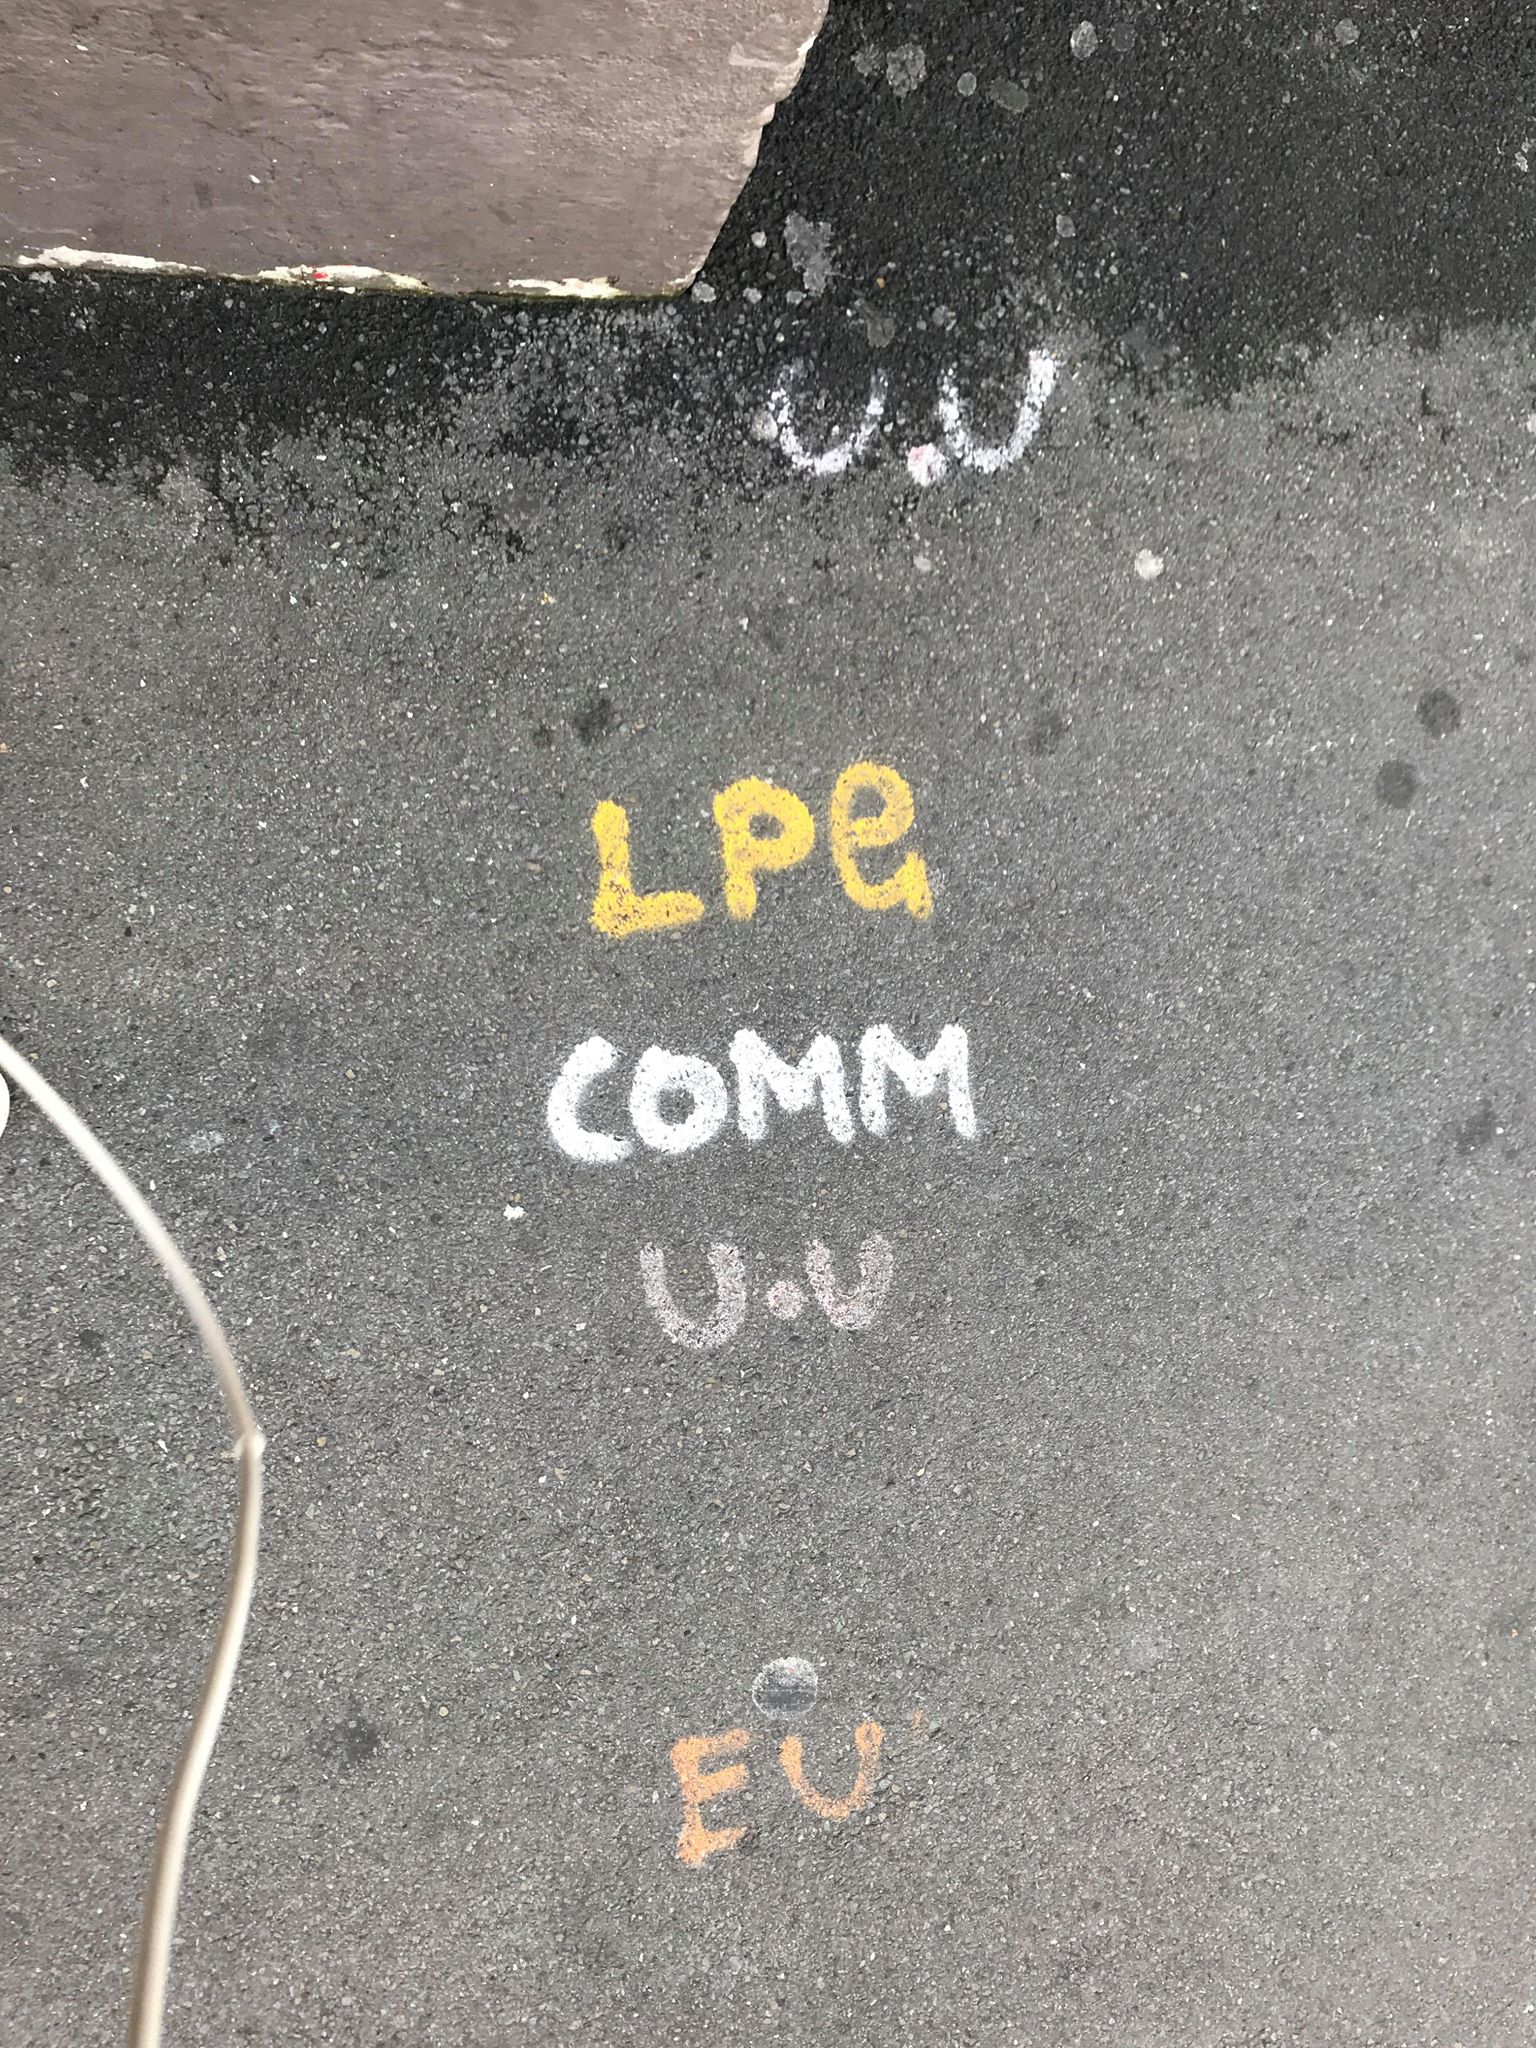 U.U
LPG
COMM
U.U
EU